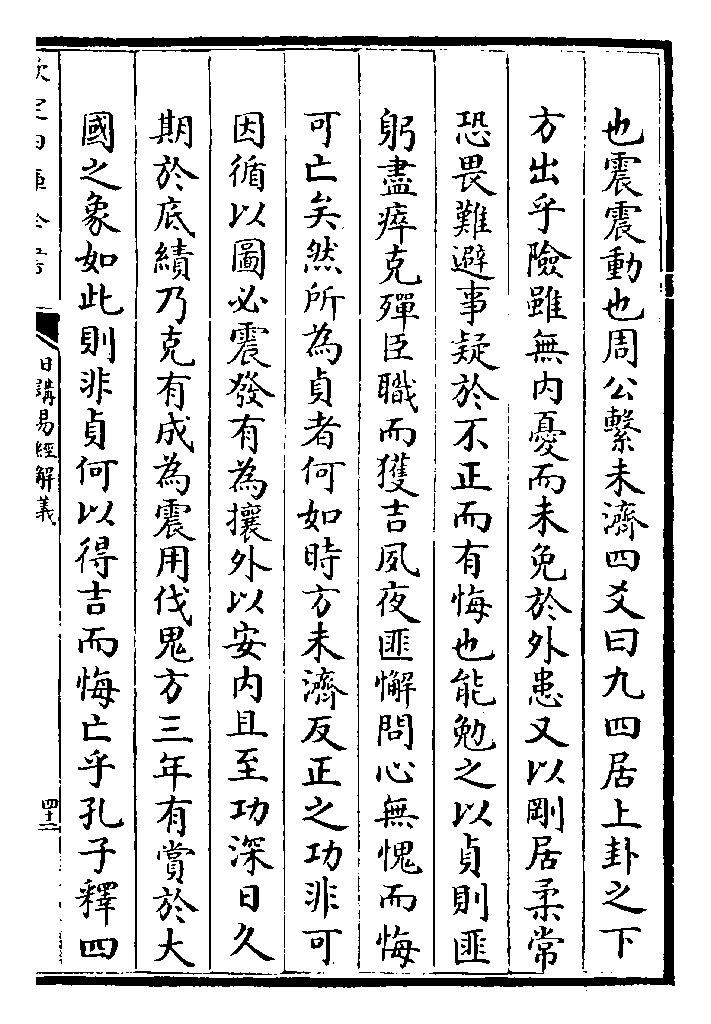 也震震動也周公繫未濟四爻曰九四居上卦之下
方出乎險雖無内憂而未免於外患又以剛居柔常
恐畏難避事疑於不正而有悔也能勉之以貞則匪
躬盡瘁克殫臣職而獲吉夙夜匪懈問心無愧而悔
可亡矣然所為貞者何如時方未濟反正之功非可
因循以圖必震發有為攘外以安内且至功深日久
期於底績乃克有成為震用伐鬼方三年有賞於大
國之象如此則非貞何以得吉而悔亡乎孔子釋四
日講易經解義